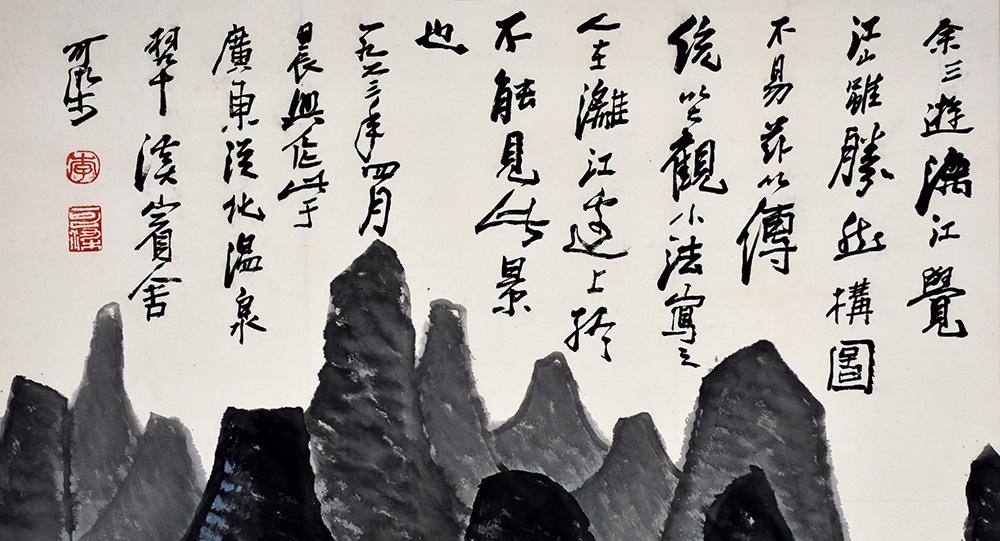 余三遊漓江覺
江山雖勝然構圖
不易茲以傳
統以大觀小法寫之
人在漓江邊上終
不能見此景
也
一九七三年四月
晨興作此于
廣東從化溫泉
翠溪賓舍
可染
李
可染